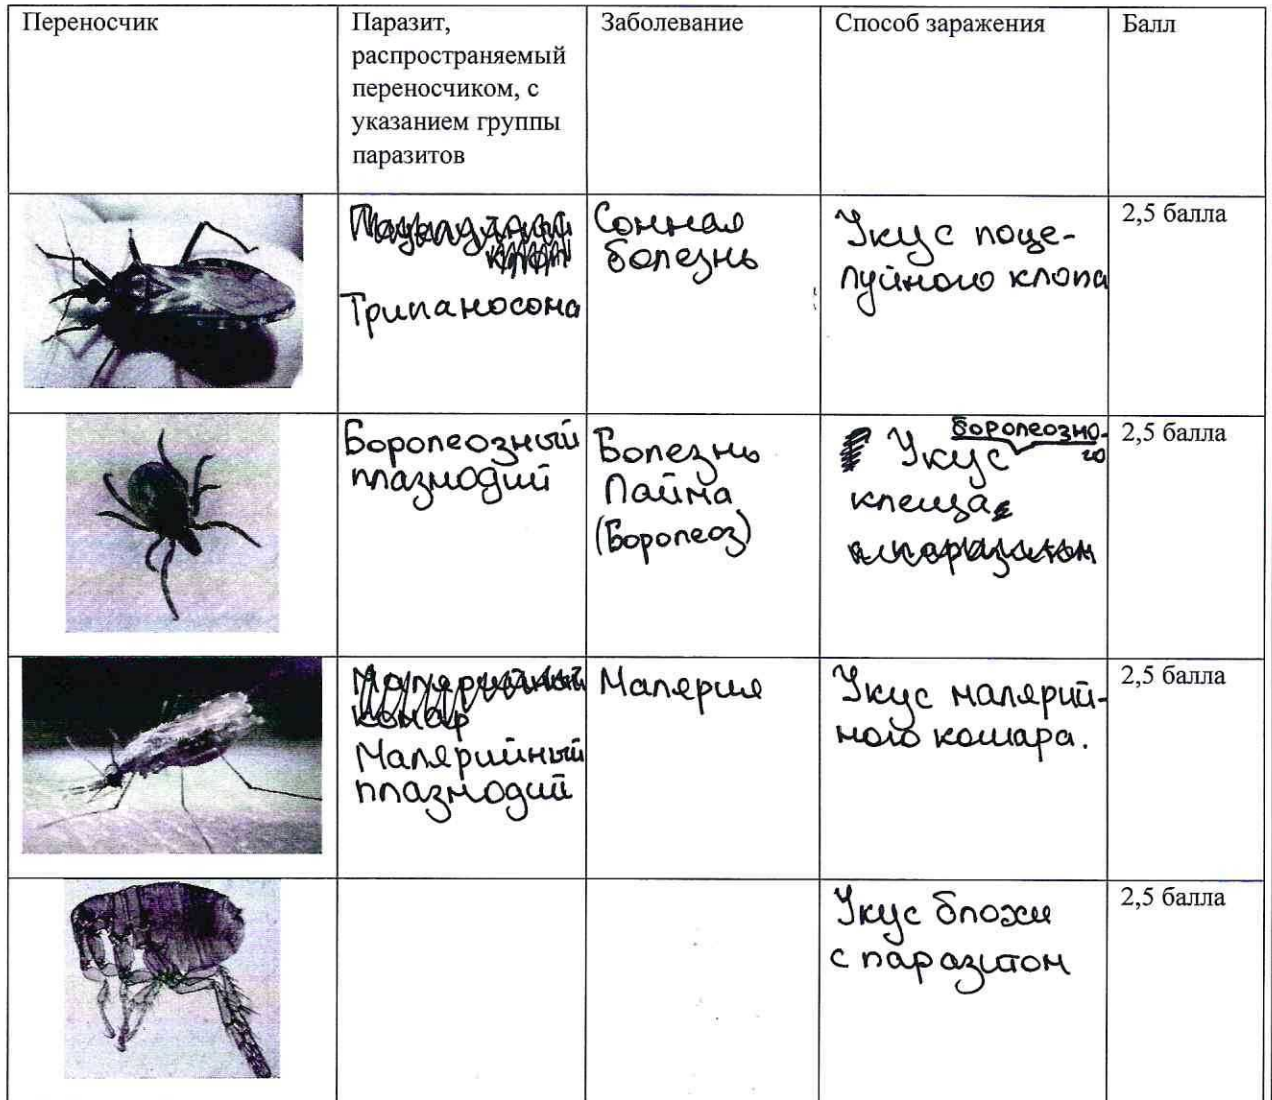 Переносчик
Паразит,
распространяемый
переносчиком, с
указанием группы
паразитов
Заболевание
Способ заражения
Балл
Трипаносома
Сонная
болезнь
Укус поце-
луйного клопа
2,5 балла
Боролеозный
плазмодий
Болезнь
Лайма
(Боролеоз)
Укус боролеозно-
го
клеща
2,5 балла
Малярийный
комар
Малярийный
плазмодий
Малярия
Укус малярий-
ного комара.
2,5 балла
Укус блохи
с паразитом
2,5 балла